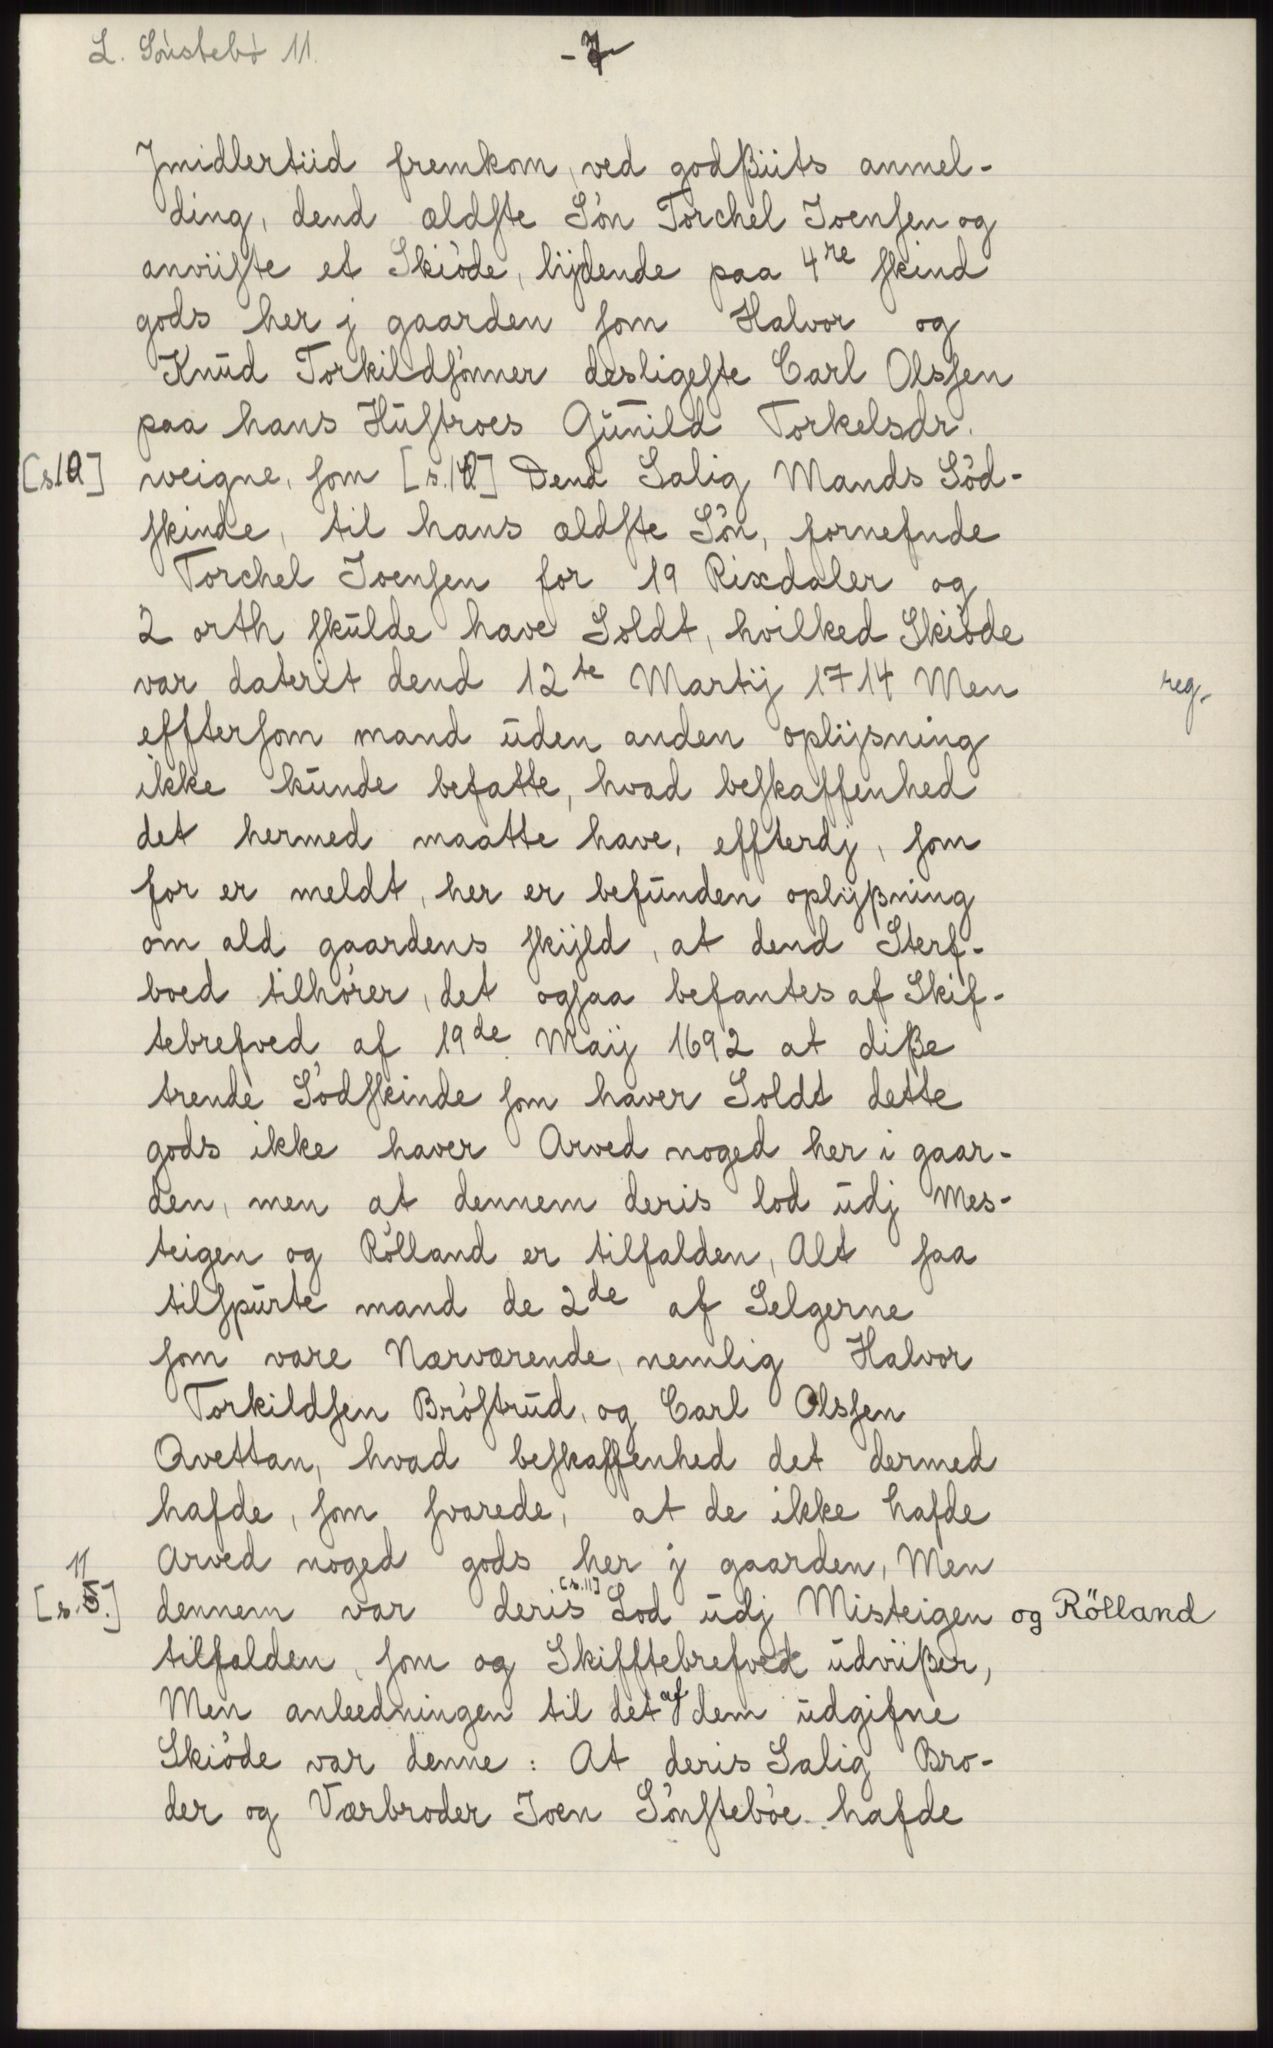 L. Sönstebö 11.
- 7 -
Jmidlertiid fremkom, ved godßiits anmel-
ding, dend ældste Sön Torchel Joensen og
anviiste et Skiöde, lijdende paa 4re skind
gods her j gaarden som Halvor og
Knud Torkildsönner desligeste Carl Olssen
paa hans Hustroes Gunild Torkelsdr.
[s10] weigne, som [s.10] Dend Salig Mands Söd-
skinde, til hans ældste Sön, fornefnde
Torchel Joensen for 19 Rixdaler og
2 orth skulde have Soldt, hvilked Skiöde
var daterit dend 12te Martij 1714 Men reg.
efftersom mand uden anden oplijsning
ikke kunde befatte, hvad beskaffenhed
det hermed maatte have, effterdj, som
for er meldt, her er befunden oplijßning
om ald gaardens skijld, at dend Sterf-
boed tilhörer, det ogsaa befantes af Skif-
tebrefved af 19de Maij 1692 at diße
trende Södskinde som haver Soldt dette
gods ikke haver Arved noged her i gaar-
den, men at dennem deris lod udj Mes-
teigen og Rölland er tilfalden, Alt saa
tilspurte mand de 2de af Selgerne
som vare Nærværende, nemlig Halvor
Torkildsen Bröstrud, og Carl Olssen
Qvettan, hvad beskaffenhed det dermed
hafde, som svarede, at de ikke hafde
Arved noged gods her j gaarden, Men
[s. 11] dennem var deris [s.11] Lod udj Misteigen og Rölland
tilfalden, som og Skifftebrefved udviißer,
Men anleedningen til det af dem udgifne
Skiöde var denne: At deris Salig Bro-
der og Værbroder Joen Sönsteböe hafde